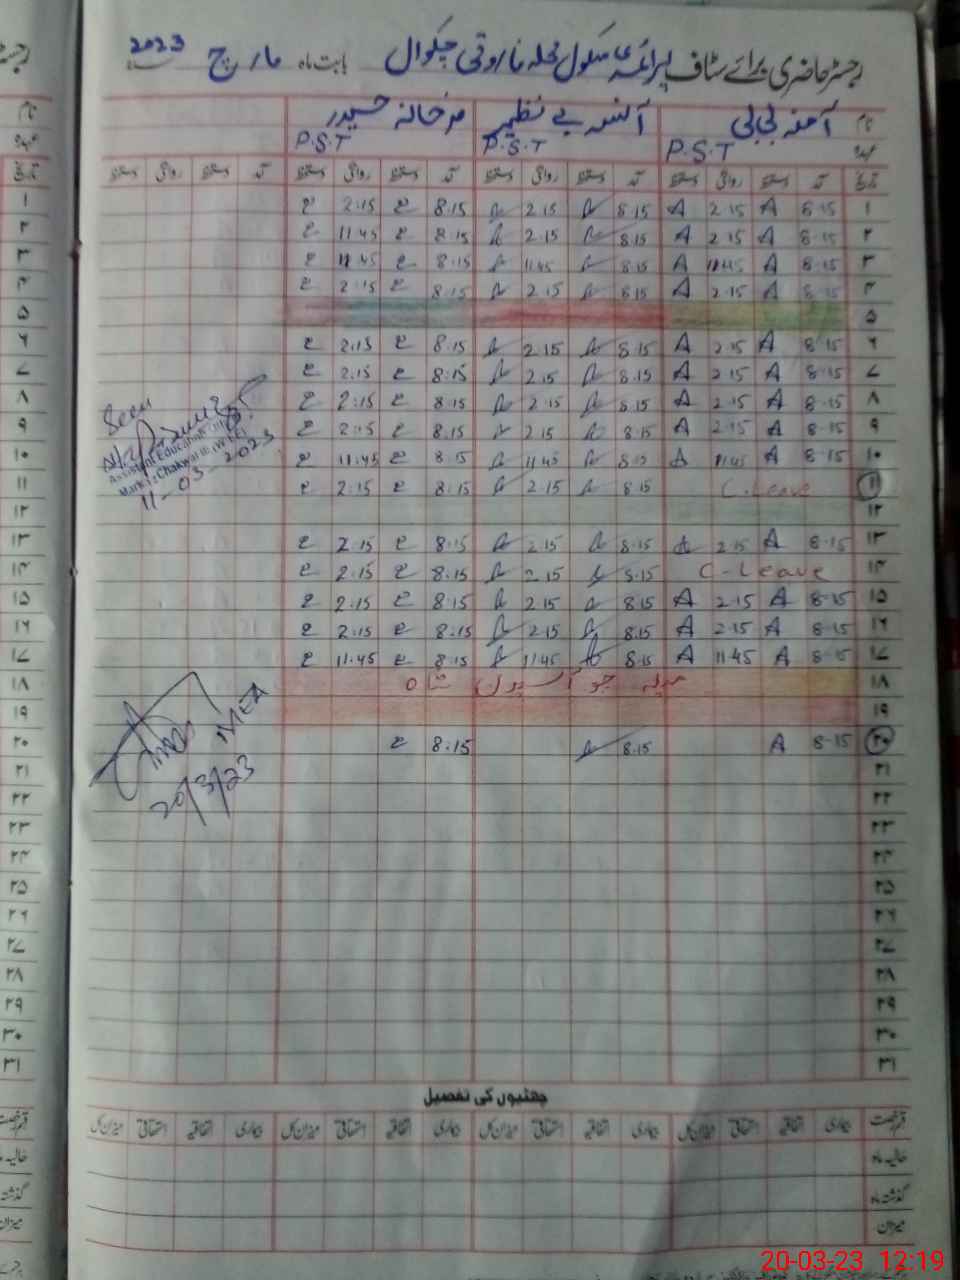 رجسٹر حاضری برائے سٹاف پرائمری سکول محلہ فاروقی چکوال بابت ماہ مارچ 2023
نام آمنہ بی بی آنسہ بے نظیر فرحانہ حیدر
عہدہ P.S.T P.S.T P.S.T
تاریخ آمد دستخط روانگی دستخط آمد دستخط روانگی دستخط آمد دستخط روانگی دستخط آمد دستخط روانگی دستخط
۱ 8.15 A 2.15 A 8.15 2.15 8.15 ع 2.15 ع
۲ 8.15 A 2.15 A 8.15 2.15 8.15 ع 11.45 ع
۳ 8.15 A 11.45 A 8.15 11.45 8.15 ع 11.45 ع
۴ 8.15 A 2.15 A 8.15 2.15 8.15 ع 2.15 ع
۵
۶ 8.15 A 2.15 A 8.15 2.15 8.15 ع 2.15 ع
۷ 8.15 A 2.15 A 8.15 2.15 8.15 ع 2.15 ع
۸ 8.15 A 2.15 A 8.15 2.15 8.15 ع 2.15 ع
۹ 8.15 A 2.15 A 8.15 2.15 8.15 ع 2.15 ع
۱۰ 8.15 A 11.45 A 8.15 11.45 8.15 ع 11.45 ع
۱۱ C.Leave 8.15 2.15 8.15 ع 2.15 ع
۱۲
۱۳ 8.15 A 2.15 A 8.15 2.15 8.15 ع 2.15 ع
۱۴ C-Leave 8.15 2.15 8.15 ع 2.15 ع
۱۵ 8.15 A 2.15 A 8.15 2.15 8.15 ع 2.15 ع
۱۶ 8.15 A 2.15 A 8.15 2.15 8.15 ع 2.15 ع
۱۷ 8.15 A 11.45 A 8.15 11.45 8.15 ع 11.45 ع
۱۸ میلہ شاہ
۱۹
۲۰ 8.15 A 8.15 8.15 ع
۲۱
۲۲
۲۳
۲۴
۲۵
۲۶
۲۷
۲۸
۲۹
۳۰
۳۱
Seen
Assistant Education Officer
Markaz Chakwal
11-03-2023
MEA
20/3/23
چھٹیوں کی تفصیل
قسم رخصت بیماری اتفاقیہ استحقاقی میزان کل بیماری اتفاقیہ استحقاقی میزان کل بیماری اتفاقیہ استحقاقی میزان کل بیماری اتفاقیہ استحقاقی میزان کل
حالیہ ماہ
گذشتہ ماہ
میزان
20-03-23 12:19